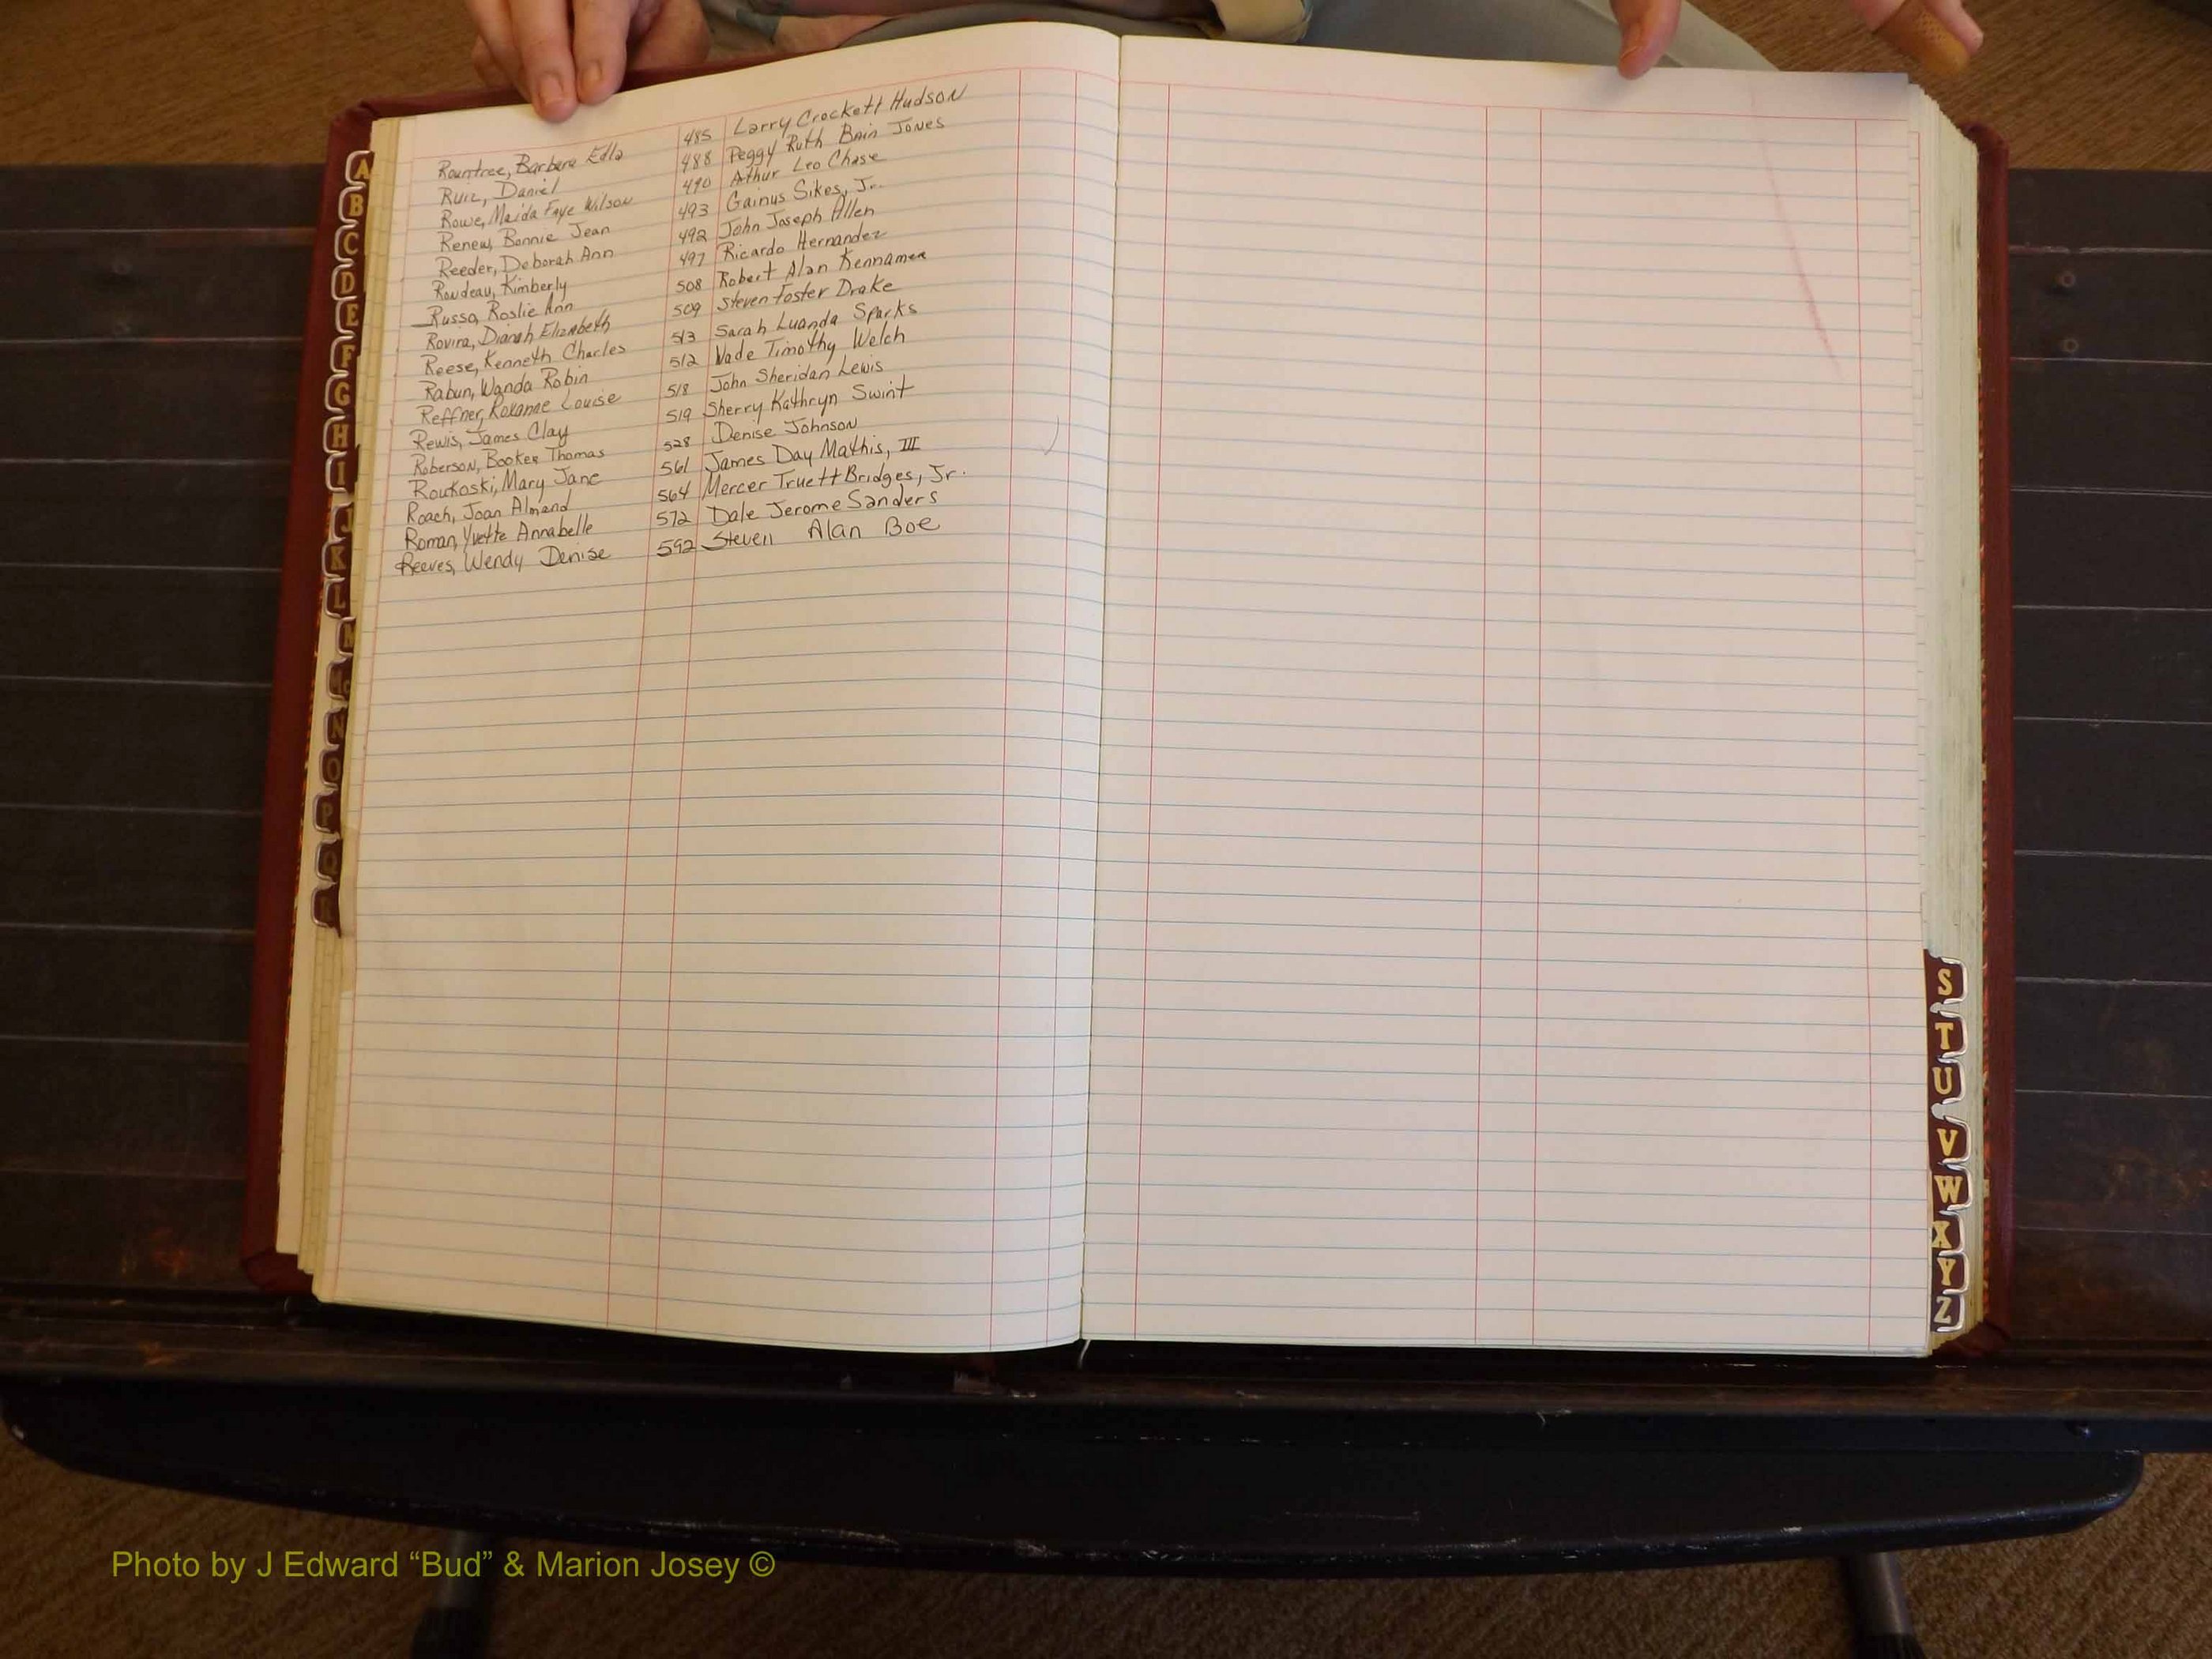 Rountree, Barbara Edla 485 Larry Crockett Hudson
Ruiz, Daniel 488 Peggy Ruth Bain Jones
Rowe, Maida Faye Wilson 490 Athur Leo Chase
Renew, Bonnie Jean 493 Gainus Sikes, Jr.
Reeder, Deborah Ann 492 John Joseph Allen
Roudeau, Kimberly 497 Ricardo Hernandez
Russo, Roslie Ann 508 Robert Alan Kennamer
Rovira, Dianah Elizabeth 509 Steven Foster Drake
Reese, Kenneth Charles 513 Sarah Luanda Sparks
Rabun, Wanda Robin 512 Wade Timothy Welch
Reffner, Roxanne Louise 518 John Sheridan Lewis
Rewis, James Clay 519 Sherry Kathryn Swint
Roberson, Booker Thomas 528 Denise Johnson
Routkoski, Mary Jane 561 James Day Mathis, III
Roach, Joan Almand 564 Mercer Truett Bridges, Jr.
Roman, Yvette Annabelle 572 Dale Jerome Sanders
Reeves, Wendy Denise 592 Steven Alan Boe
A
B
C
D
E
F
G
H
I
J
K
L
M
Mc
N
O
P
Q
R
S
T
U
V
W
X
Y
Z
Photo by J Edward “Bud” & Marion Josey ©